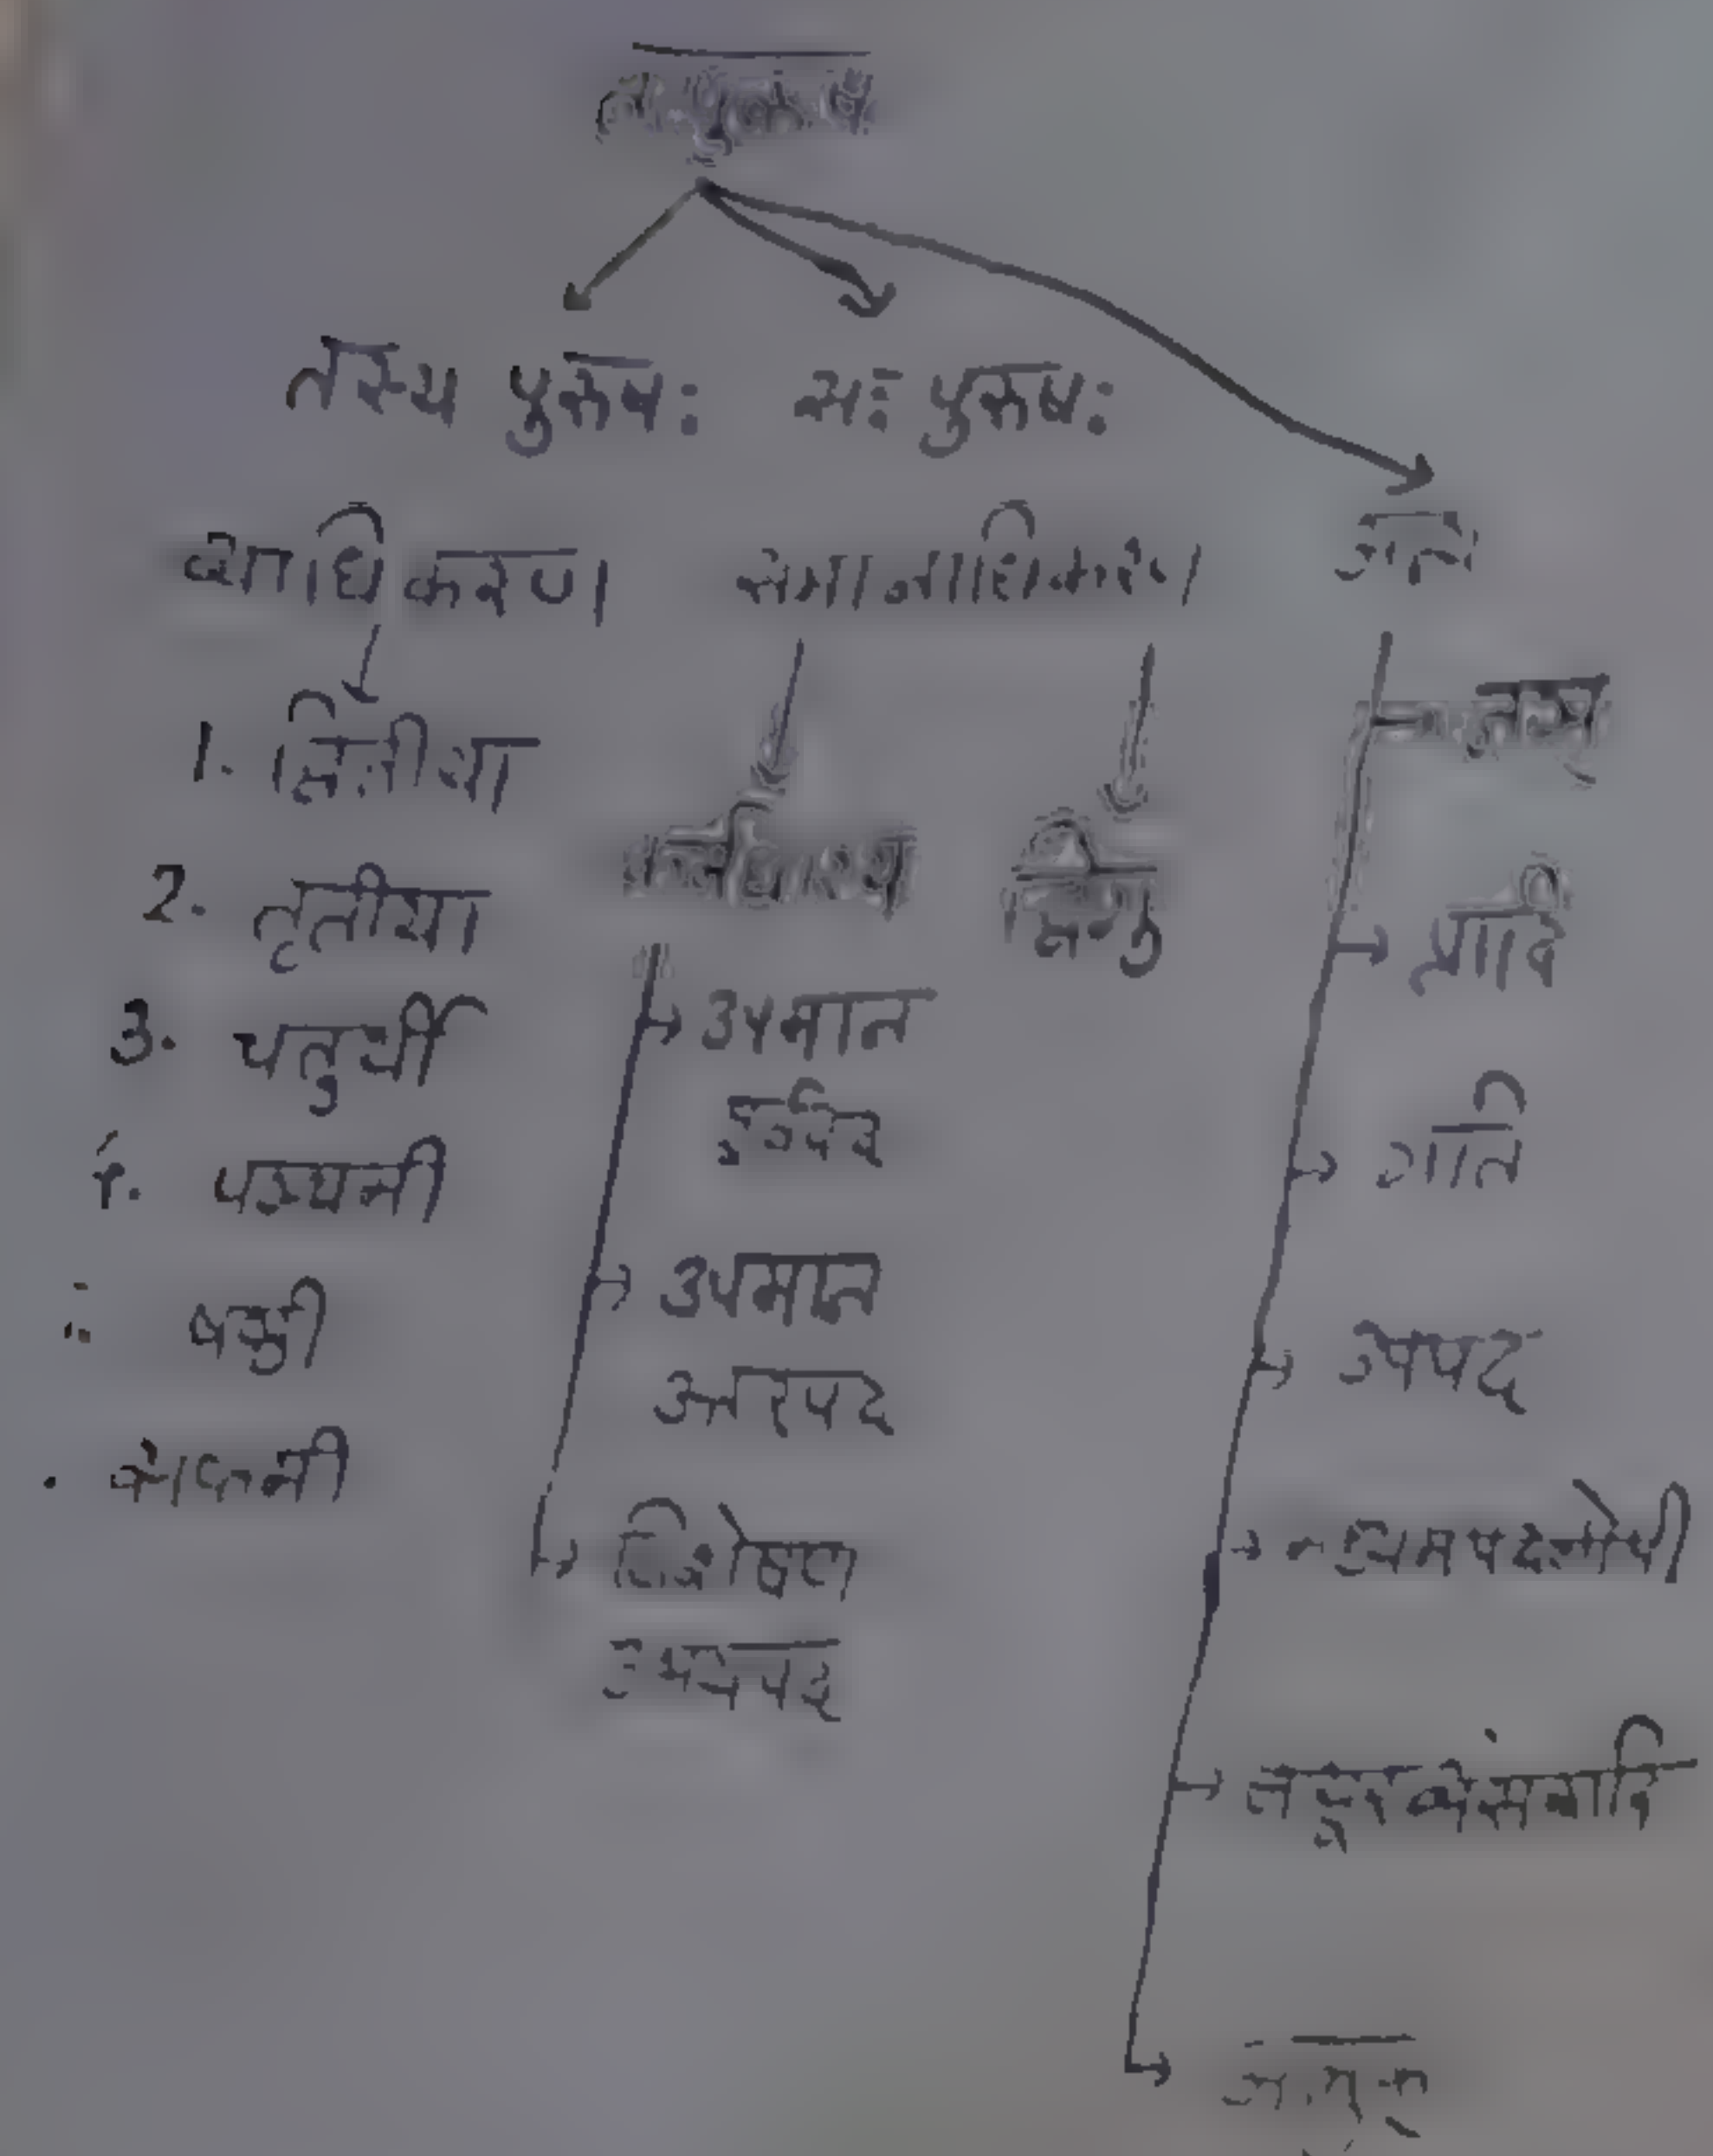 तत्पुरुष
तस्य पुरुषः सः पुरुषः
व्याधिकरण समानाधिकरण अन्य
1. द्वितीया
2. तृतीया
3. चतुर्थी
पञ्चमी
षष्ठी
सप्तमी
कर्मधारय द्विगु
उपमान
पूर्वपद
उपमान
उत्तरपद
विशेषण
उभयपद
नञ्तत्पुरुष
प्रादि
गति
उपपद
मध्यमपदलोपी
मयूरव्यंसकादि
अलुक्